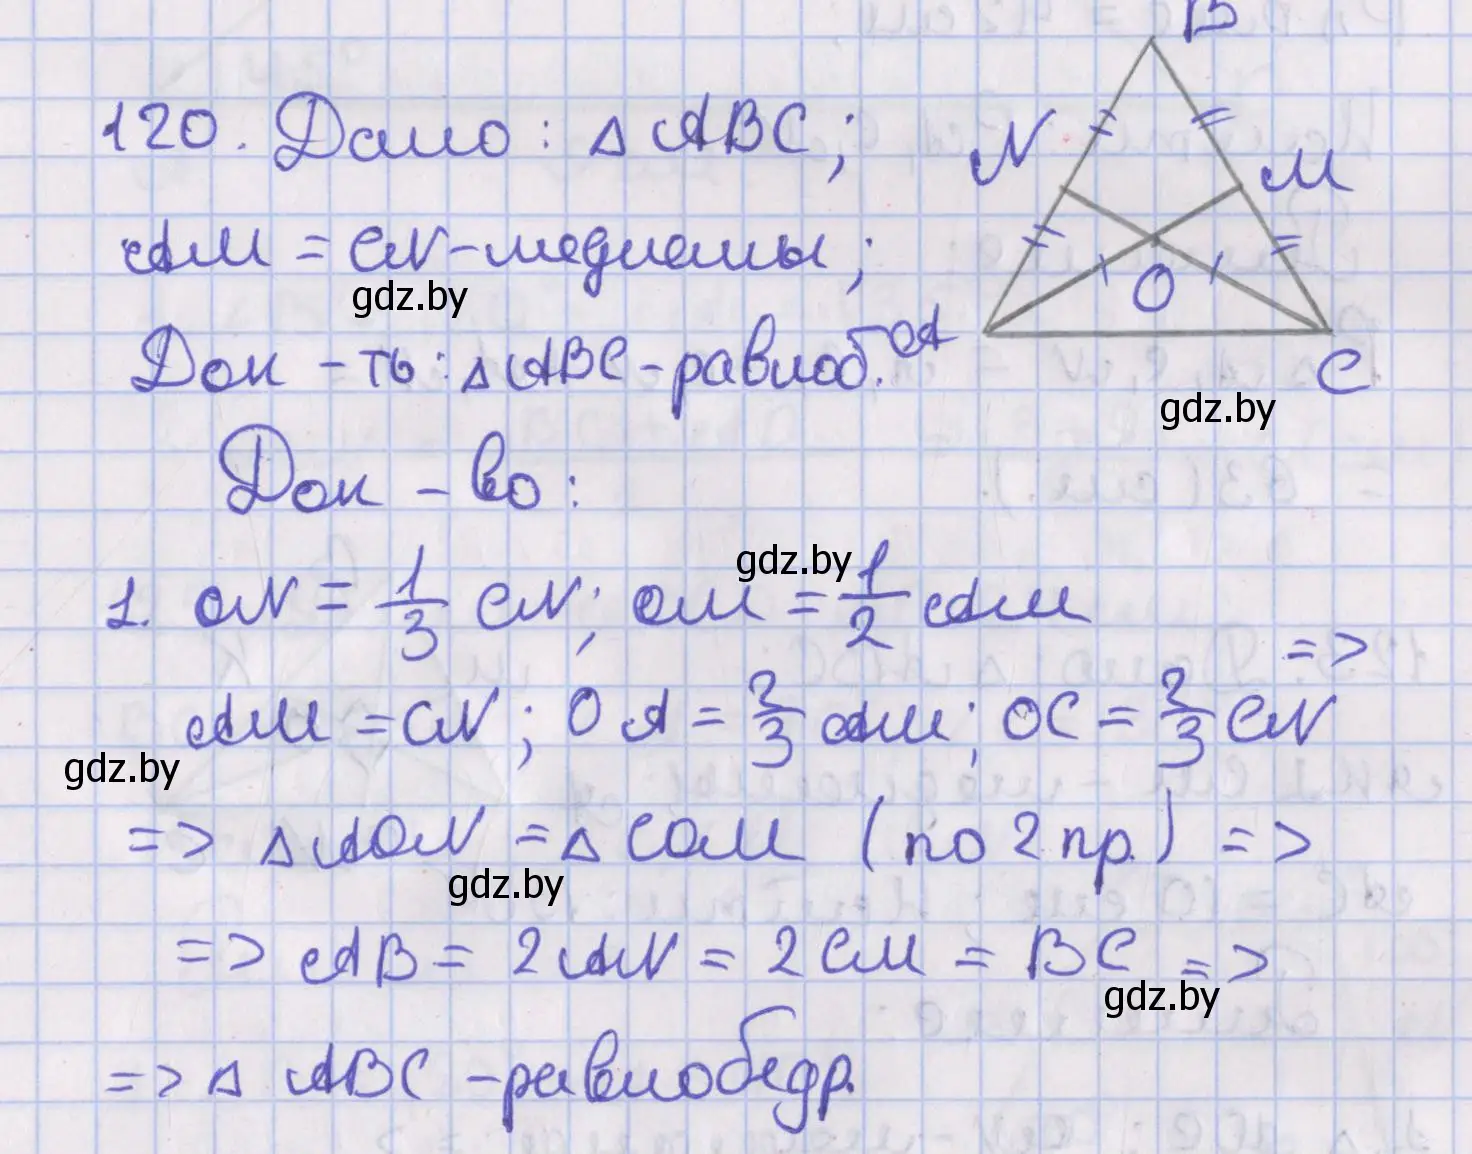 B
120. Дано: △ABC;
N
M
AM = CN - медианы;
gdz.by
O
Док-ть: △ABC - равноб.
A
C
gdz.by
Док-во:
gdz.by
1. ON = 1/3 CN; OM = 1/2 AM
=>
AM = CN; OA = 2/3 AM; OC = 2/3 CN
gdz.by
=> △AON = △COM (по 2 пр.) =>
gdz.by
=> AB = 2AN = 2CM = BC =>
gdz.by
=> △ABC - равнобедр.